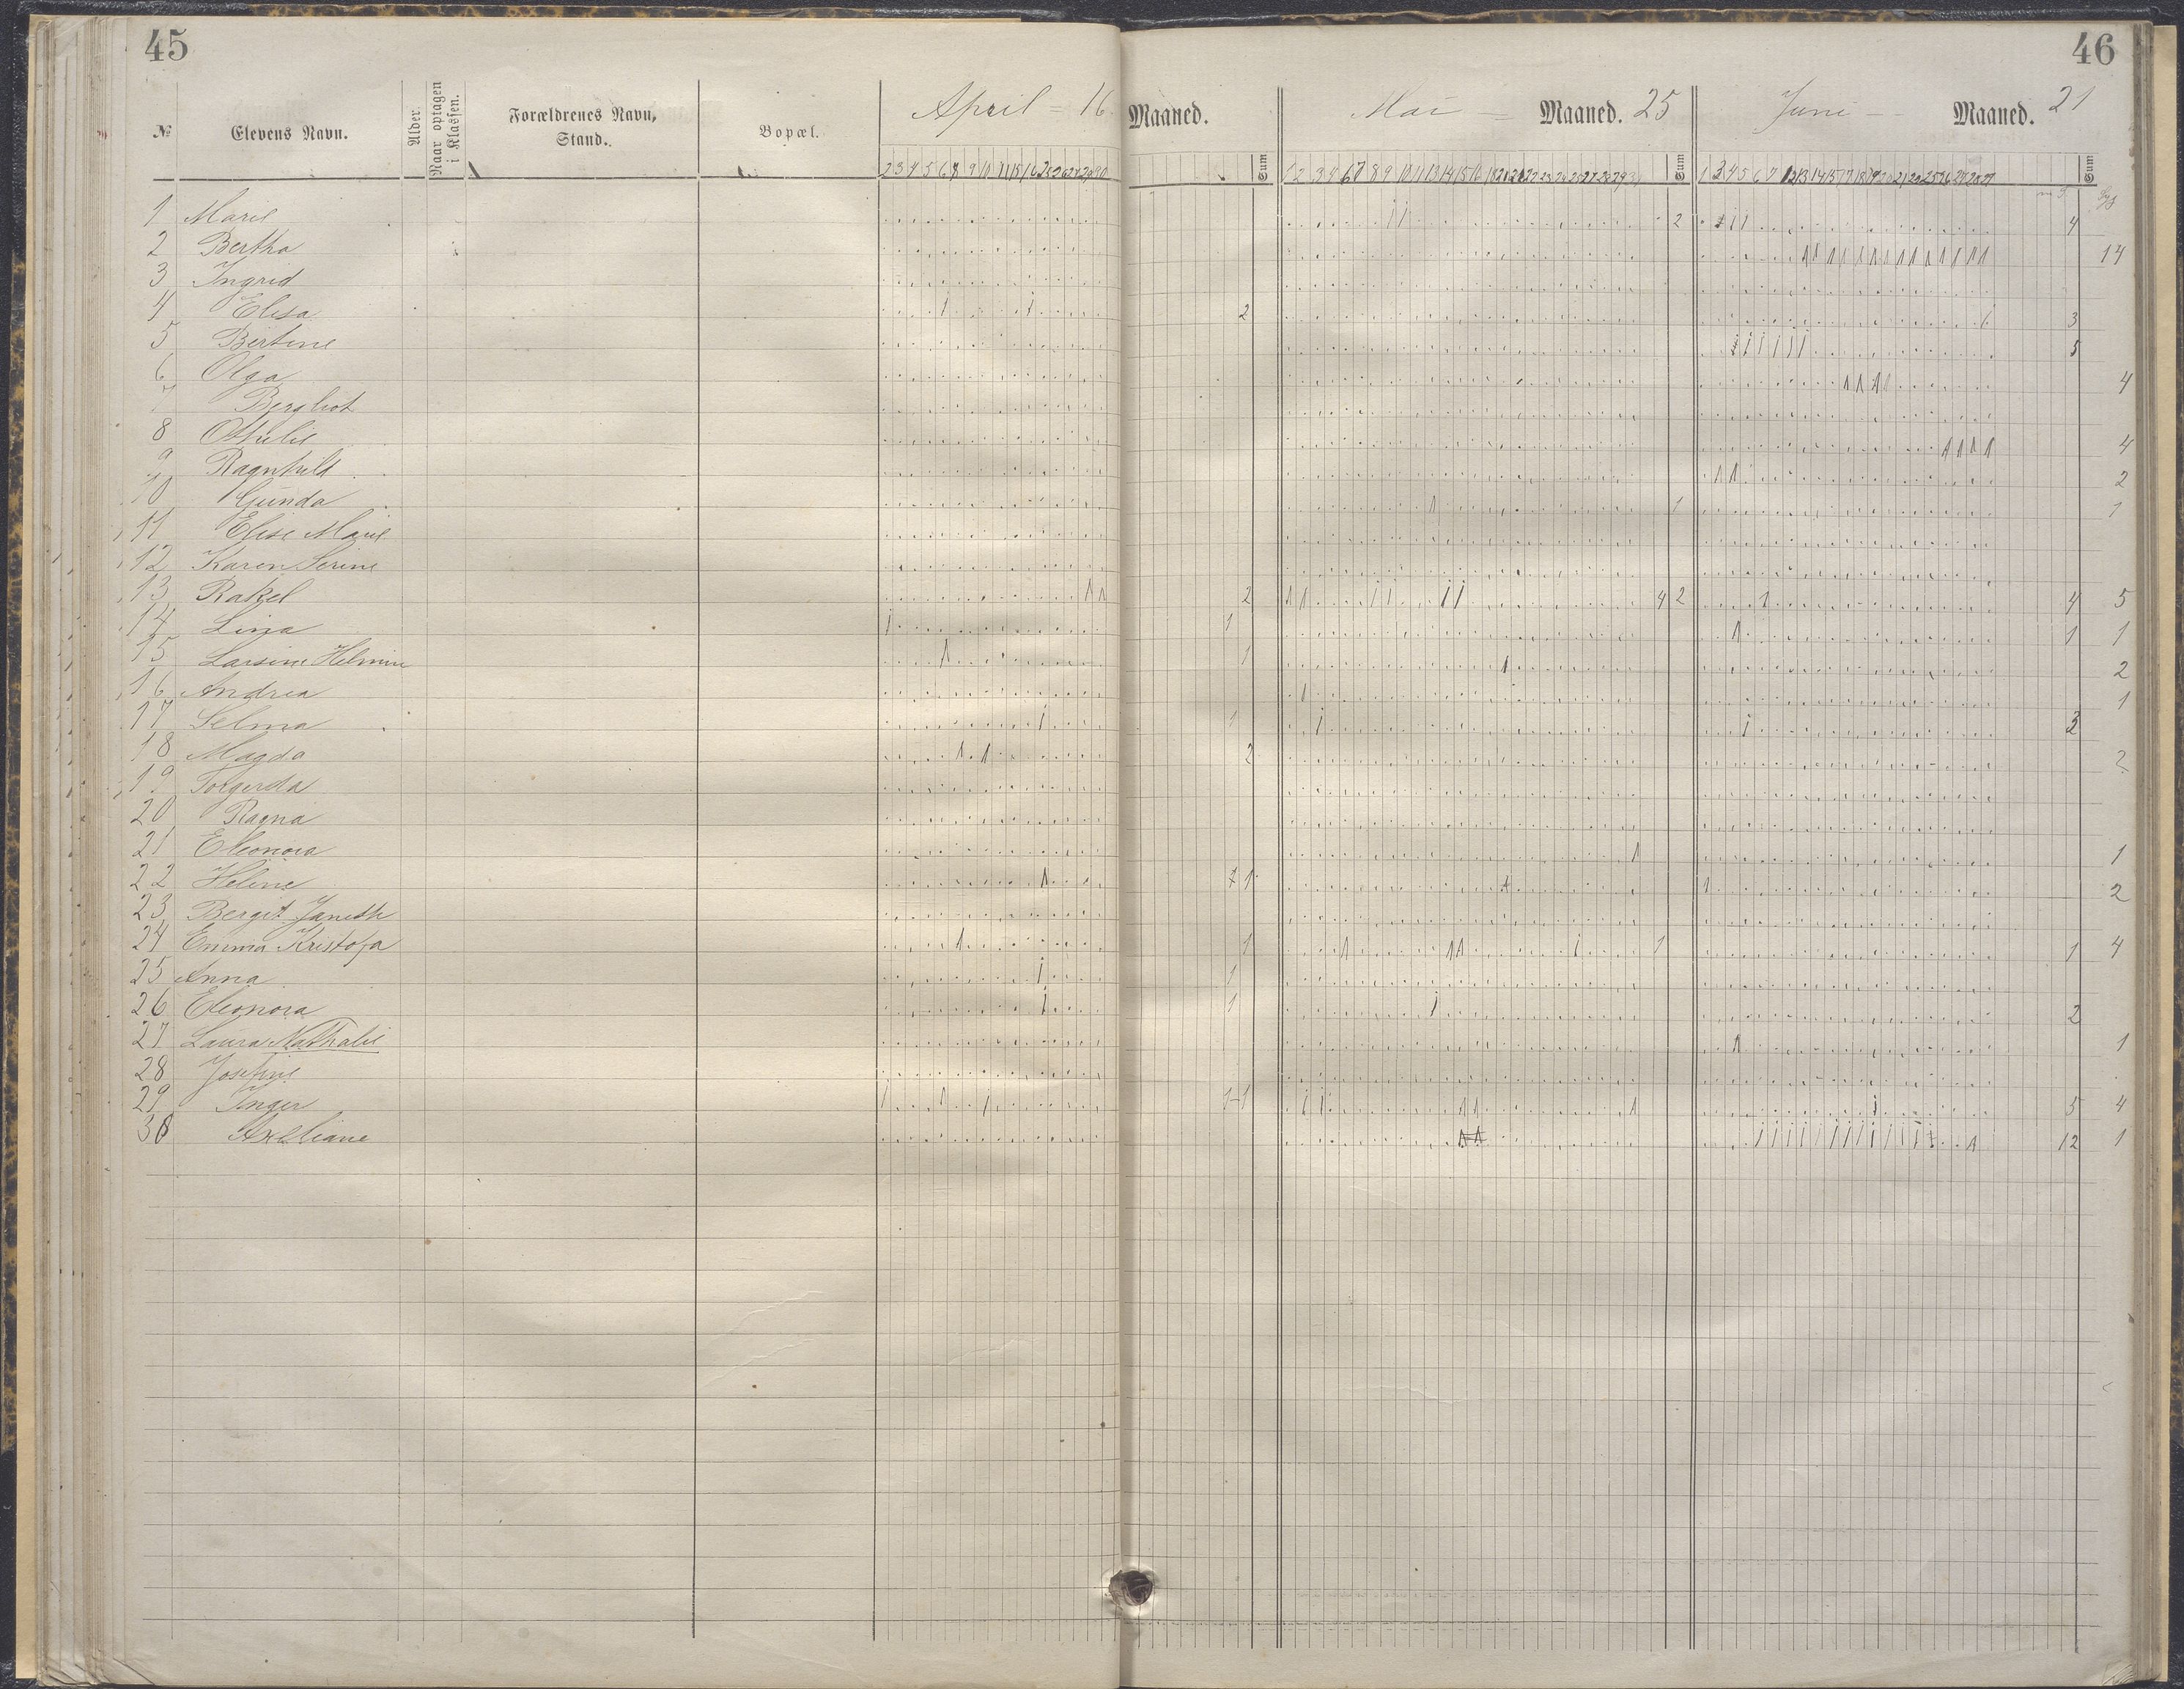 45
46
№ Elevens Navn. Alder. Naar optagen i Klassen. Forældrenes Navn, Stand. Bopæl. April = 16 Maaned. Sum Mai = Maaned. 25 Sum Juni - Maaned. 21 Sum
1 Marie 2 4
2 Bertha 14
3 Ingrid
4 Elisa 2 3
5 Bertine 5
6 Olga 4
7 Bergliot
8 Othilie 4
9 Ragnhild 2
10 Gunda 1 1
11 Elise Marie
12 Karen Serine
13 Rakel 2 4 2 4 5
14 Lina 1 1 1
15 Larsine Helmine 1 2
16 Andrea 1
17 Selma 1 3
18 Magda 2 2
19 Torgerda
20 Ragna
21 Eleonora 1
22 Heline 1 2
23 Bergit Janethe
24 Emma Kristofa 1 1 1 4
25 Anna 1
26 Eleonora 1 2
27 Laura Nathalie 1
28 Josefine
29 Inger 1-1 5 4
30 Axeliane 12 1